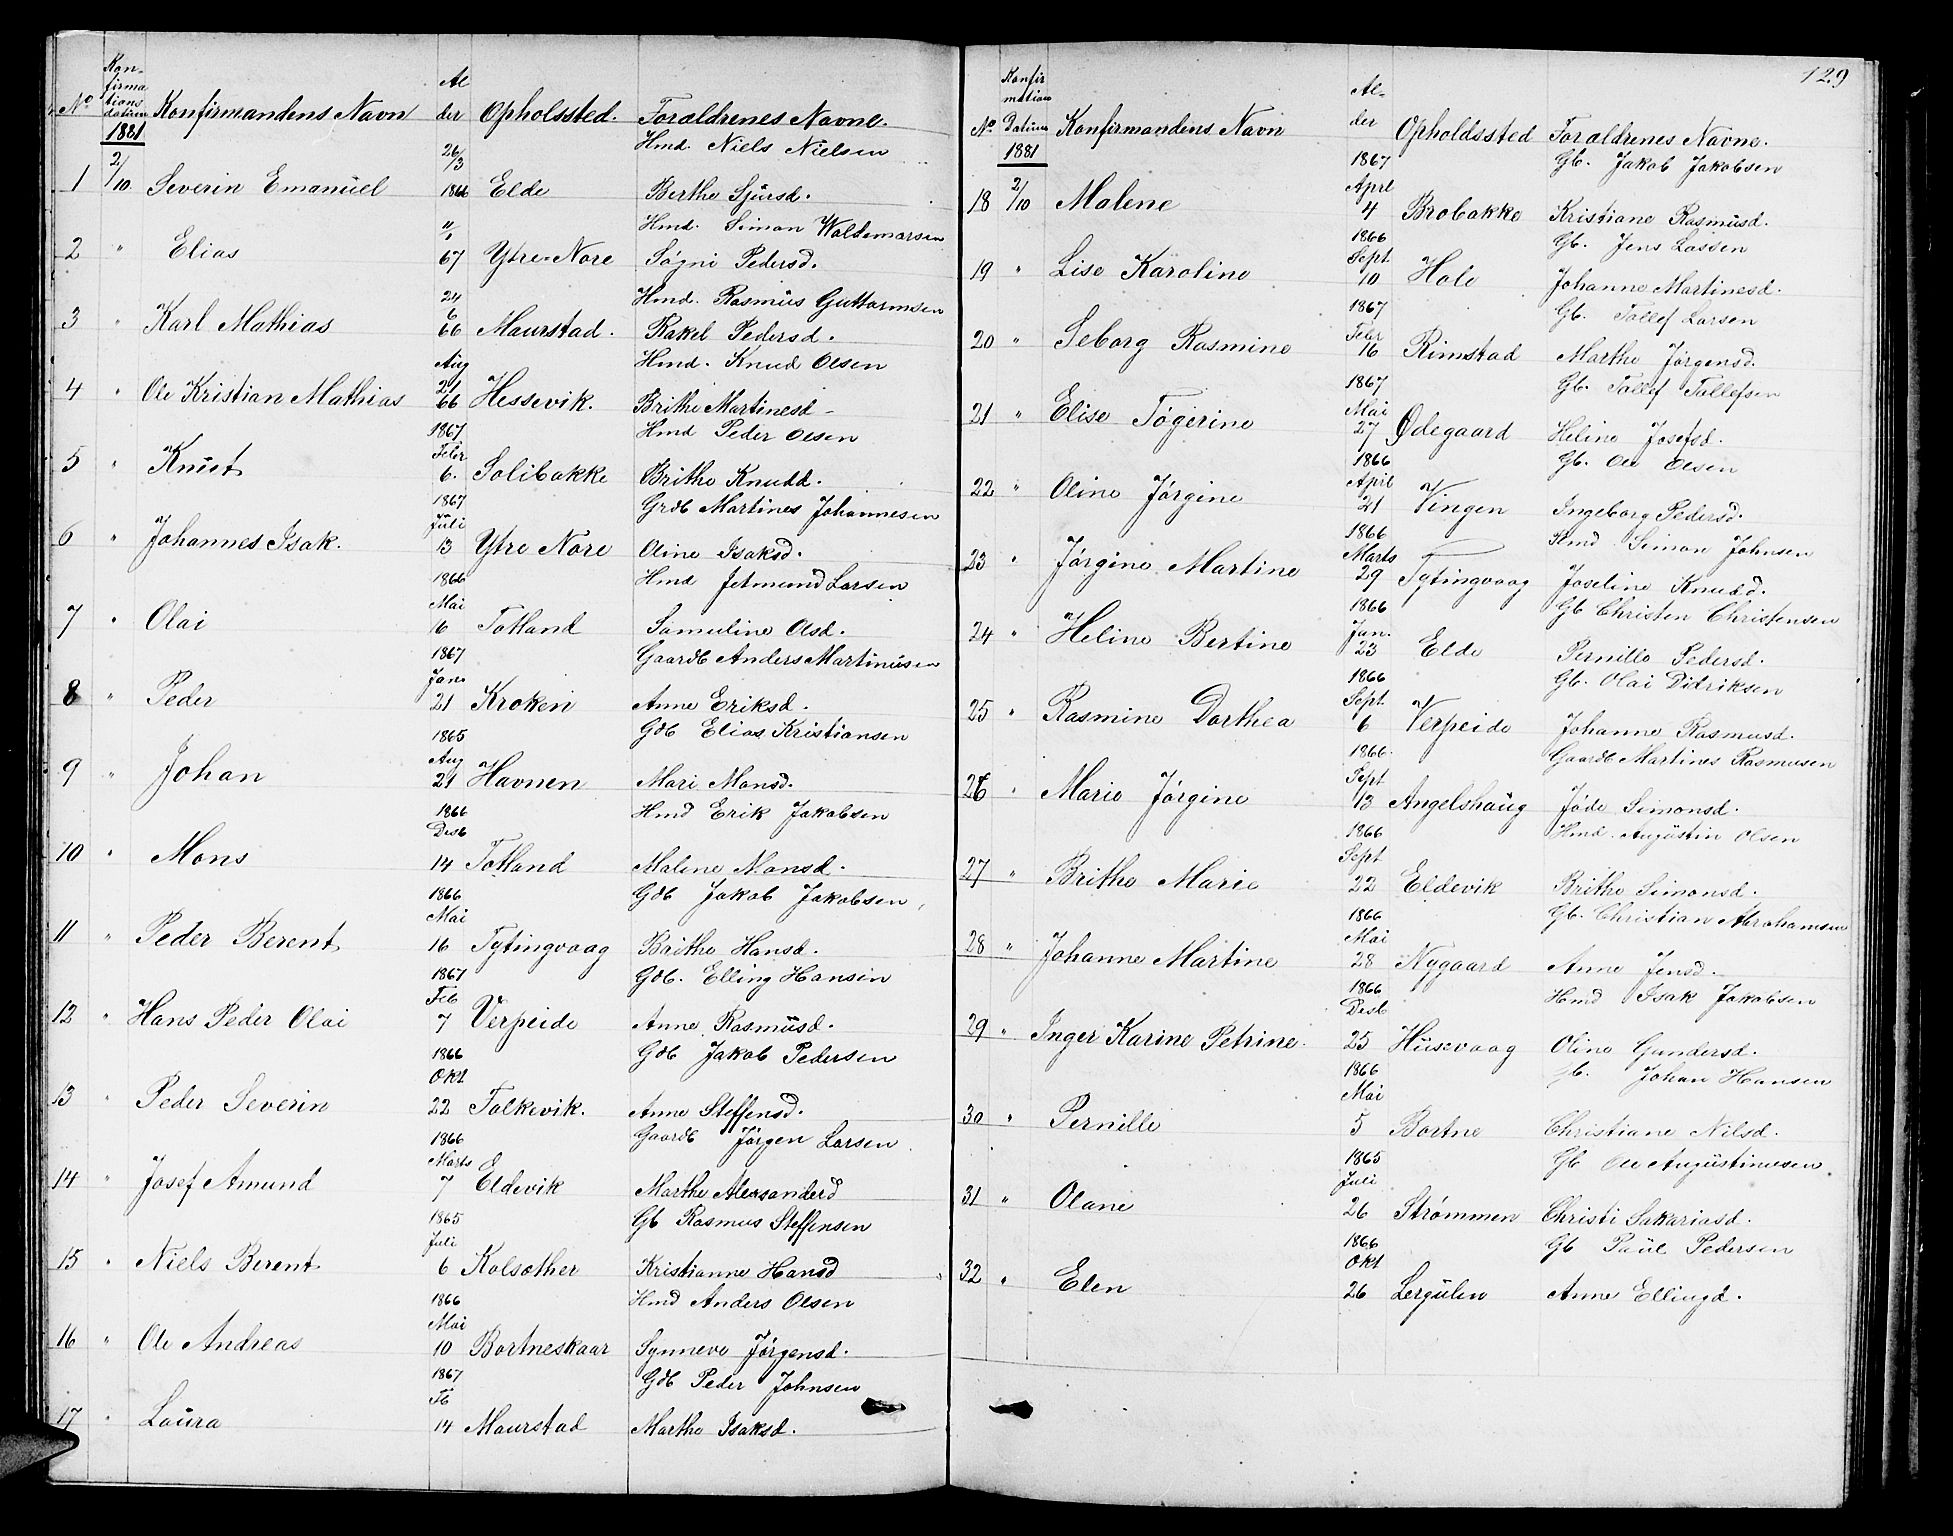 Kon-
firma
tions
No datum Konfirmandens Navn Al der Opholssted. Forældrenes Navne.
1881
26/3 Hmd. Niels Nielsen
1 2/10. Severin Emanuel 1866 Elde Berthe Sjursd.
11/1 Hmd. Simon Waldemarsen
2 " Elias 67 Ytre-Nore Søgni Pedersd.
24 Hmd. Rasmus Guttormsen
6
3 " Karl Mathias 66 Maurstad. Rakel Pedersd.
Aug Hmd. Knud Olsen
21
4 " Ole Kristian Mathias 66 Hessevik. Brithe Martinesd-
1867 Hmd Peder Olsen
Febr
5 " Knut 6. Solibakke Brithe Knudd.
1867 Grdb Martines Johannesen
Juli
6 " Johannes Isak. 13 Ytre Nore Oline Isaksd.
1866 Hmd Jetmund Larsen
Mai
7 " Olai 16 Totland Samuline Olsd.
1867 Gaardb Anders Martinusen
Jan.
8 " Peder 21 Kroken Anne Eriksd.
1865 Gdb Elias Kristiansen
Aug
9 " Johan 21 Havnen Mari Monsd.
1866 Hmd Erik Jakobsen
Desb
10 " Mons 14 Totland Malene Monsd.
1866 Gdb Jakob Jakobsen
Mai
11 " Peder Berent 16 Tytingvaag Brithe Hansd.
1867 Gdb. Elling Hansen
Feb
12 " Hans Peder Olai 7 Verpeide Anne Rasmusd.
1866 Gdb Jakob Pedersen
Okt
13 " Peder Severin 22 Falkevik. Anne Steffensd.
1866 Gaardb Jørgen Larsen
Marts
14 " Josef Amund 7 Eldevik Marthe Alexsanderd
1865 Gb Rasmus Steffensen
Juli
15 " Niels Berent 6 Kolsæther Kristianne Hansd
1866 Hmd Anders Olsen
Mai
16 " Ole Andreas 10 Bortneskaar Synneve Jørgensd.
1867 Gdb Peder Johnsen
Fb
17 " Laura 14 Maurstad Marthe Isaksd.
129
Konfir
mations
No Datum Konfirmandens Navn Al-der Opholdssted Forældrenes Navne.
1881
1867 Gb. Jakob Jakobsen
Aprl
18 2/10 Malene 4 Brobakke Kristiane Rasmusd.
1866 Gb. Jens Lassen
Sept
19 " Lise Karoline 10 Hole Johanne Martinesd.
1867 Gb. Tollef Larsen
Febr
20 " Seborg Rasmine 16 Rimstad Marthe Jørgensd.
1867 Gb. Tollef Tollefsen
Mai
21 " Elise Tøgerine 27 Ødegaard Heline Josefsd.
1866 Gb. Ole Olsen
April
22 " Oline Jørgine 21 Vingen Ingeborg Pedersd.
1866 Hmd Simon Johnsen
Marts
23 " Jørgine Martine 29 Tytingvaag Joseline Knudd.
1866 Gb Christen Christensen
Jan.
24 " Heline Bertine 23 Elde Pernille Pedersd.
1866 Gb. Olai Didriksen
Sept
25 " Rasmine Dorthea 6 Verpeide Johanne Rasmusd.
1866. Gaardb Martines Rasmusen
Sept
26 " Marie Jørgine 13 Angelshaug Jøde Simonsd.
1866 Hmd. Augustin Olsen
Sept
27 " Brithe Marie 22 Eldevik Brithe Simonsd.
1866 Gb. Christian Abrahamsen
Mai
28 " Johanne Martine 28 Nygaard Anne Jensd.
1866 Hmd Isak Jakobsen
Desb
29 " Inger Karine Petrine. 25 Husevaag Oline Gundersd.
1866 Gb. Johan Hansen
Mai
30 " Pernille 5 Bortne Christiane Nilsd.
1865 Gb Ole Augustinusen
Juli
31 " Olane 26 Strømmen Christi Sakariasd.
1866 Gb Paul Pedersen
Okt
32 " Elen 26 Lergulen Anne Ellingd.